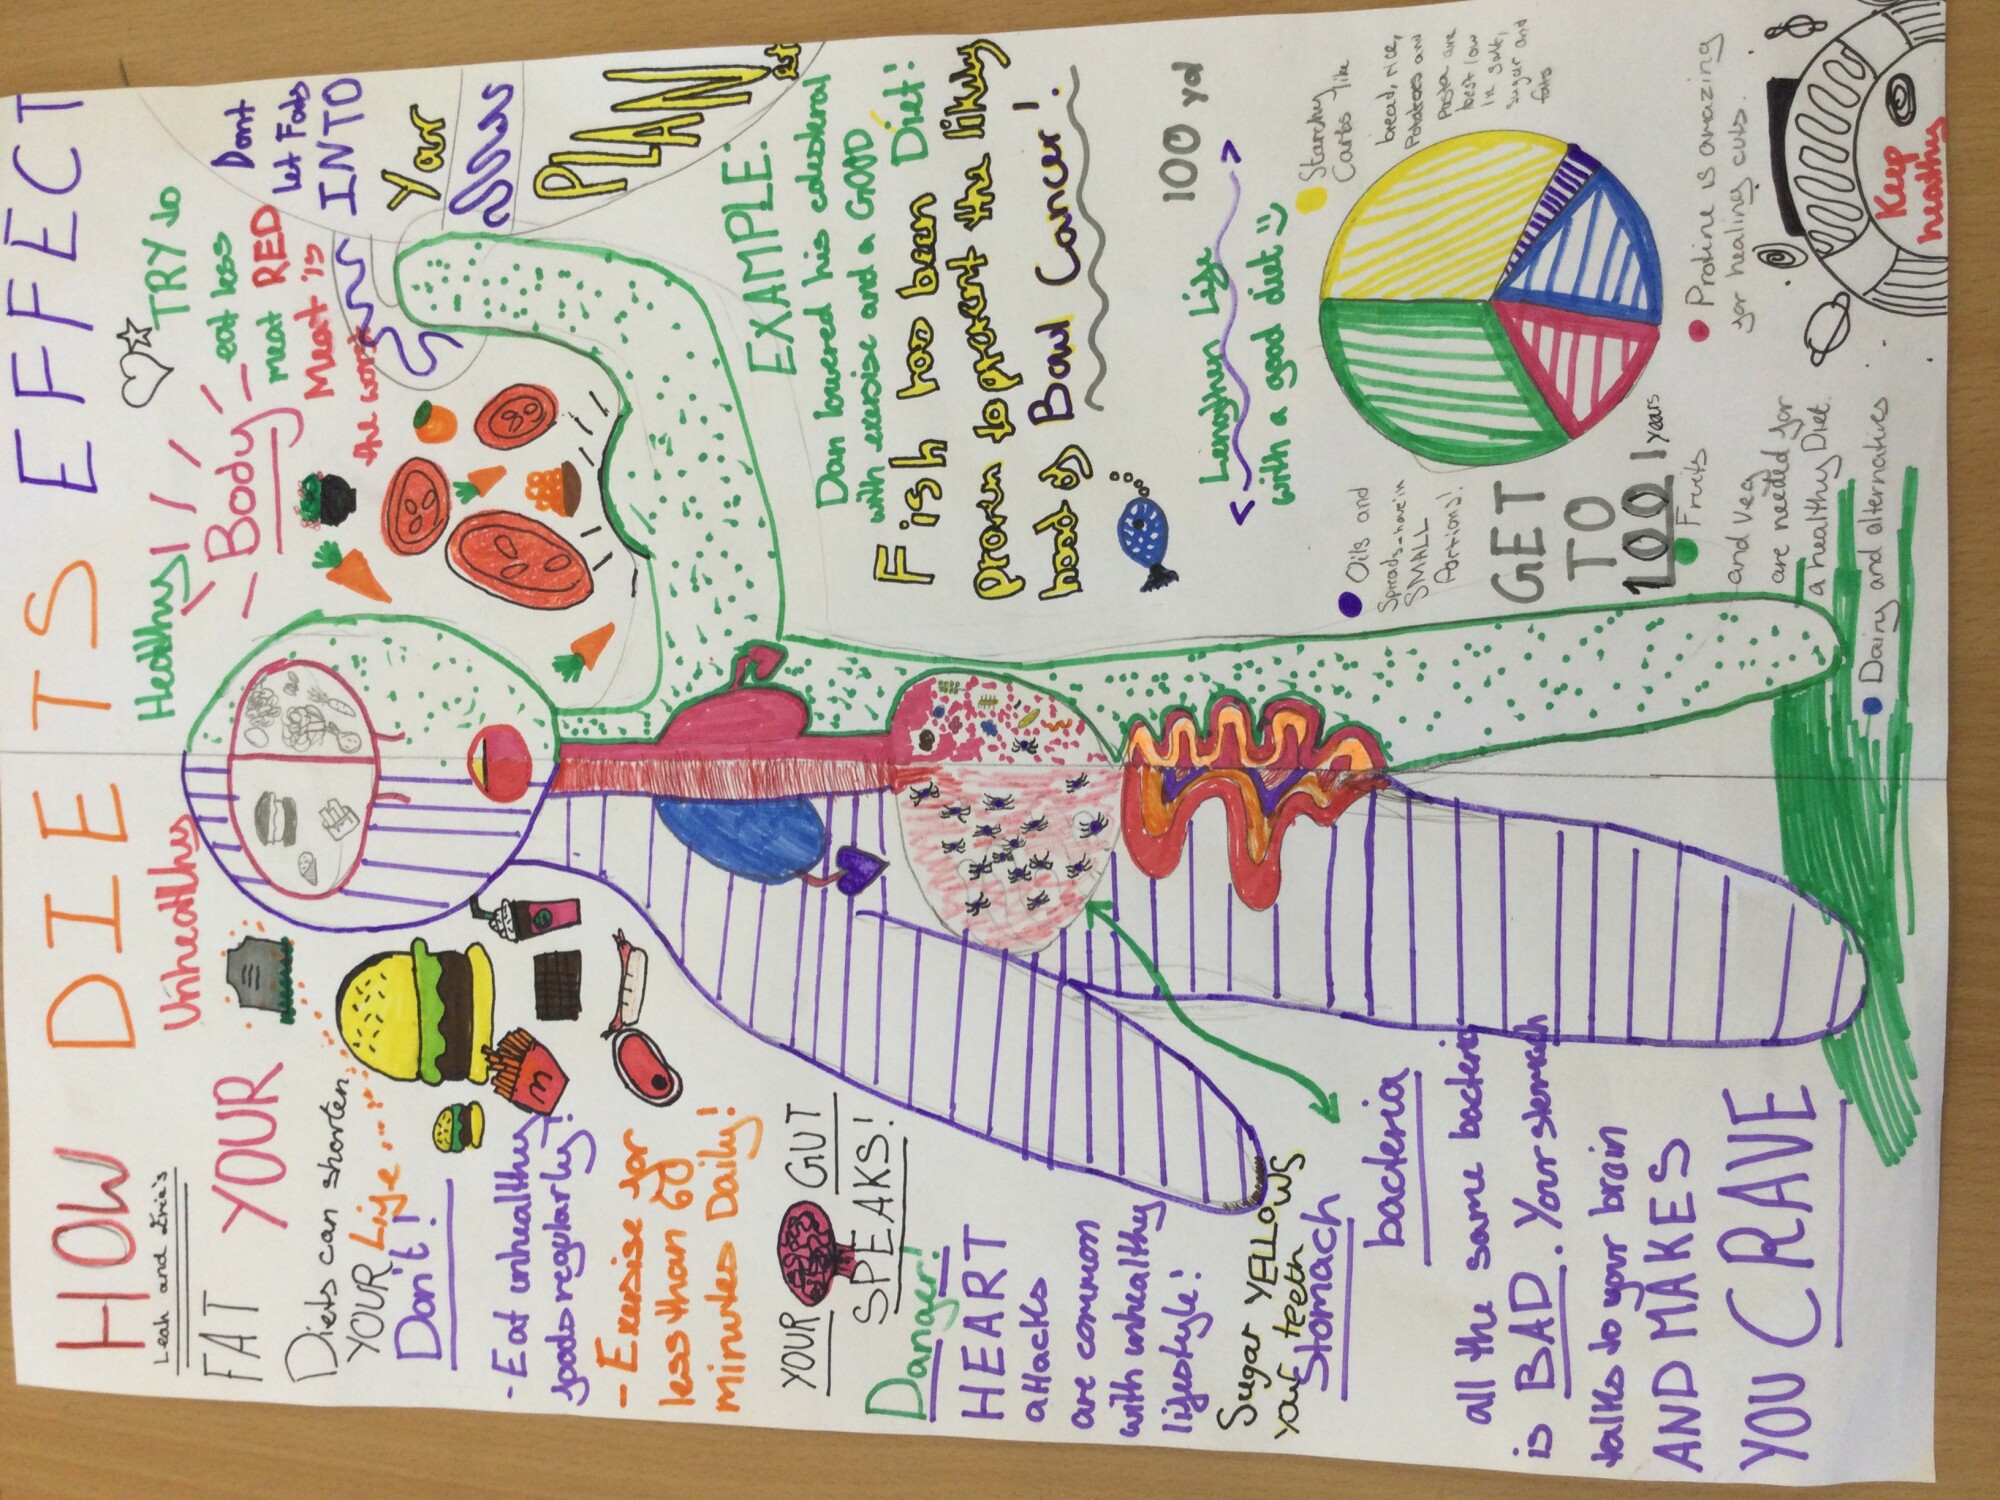 HOW DIETS EFFECT
Leah and Irie's
FAT YOUR
Unhealthy
Healthy!
Body
Diets can shorten
YOUR Life....
Don't!
- Eat unhealthy
foods regularly!
- Exersise for
less than 60
minutes Daily!
m
YOUR GUT
SPEAKS!
Danger!
HEART
attacks
are common
with unhealthy
lifestyle!
Sugar YELLOWS
your teeth
Stomach
bacteria
all the same bacteria
is BAD. Your stomach
talks to your brain
AND MAKES
YOU CRAVE
TRY to
eat less
meat RED
Meat is
the worst
Dont
let Fats
INTO
Your
PLAN
et
EXAMPLE:
Dan lowered his colesteral
with exersise and a GOOD Diet!
Fish has been
proven to prevent the likely
hood of Bowl Cancer!
100 yd
Lenghthen Life
with a good diet
Starchy
Carbs like
bread, rice,
Potatoes and
Pasta are
best low
in salt,
sugar and
fats
Oils and
Spreads-have in
SMALL
Portions!
GET
TO
100 years
Fruits
and Veg
are needed for
a healthy Diet.
Protine is amazing
for healing cuts.
Dairy and alternatives
Keep
heathy